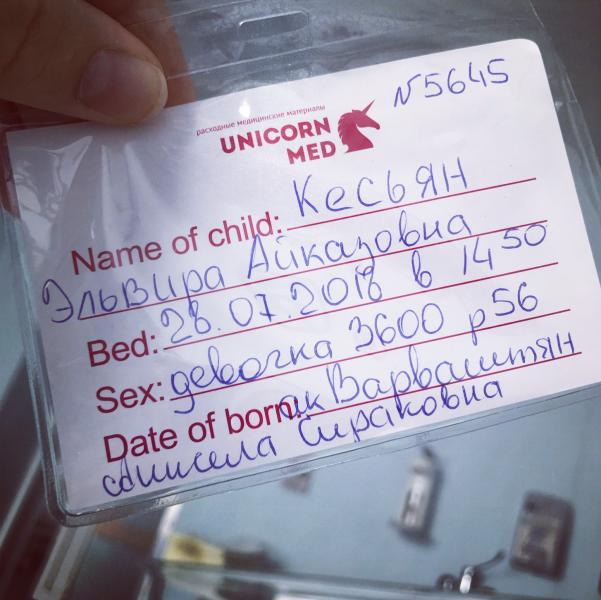 N5645
расходные медицинские материалы
UNICORN
MED
Name of child: Кесьян
Эльвира Айказовна
Bed: 28.07.2018 в 14 50
Sex: девочка 3600 р56
Date of born: ак Варваштян
Сираковна